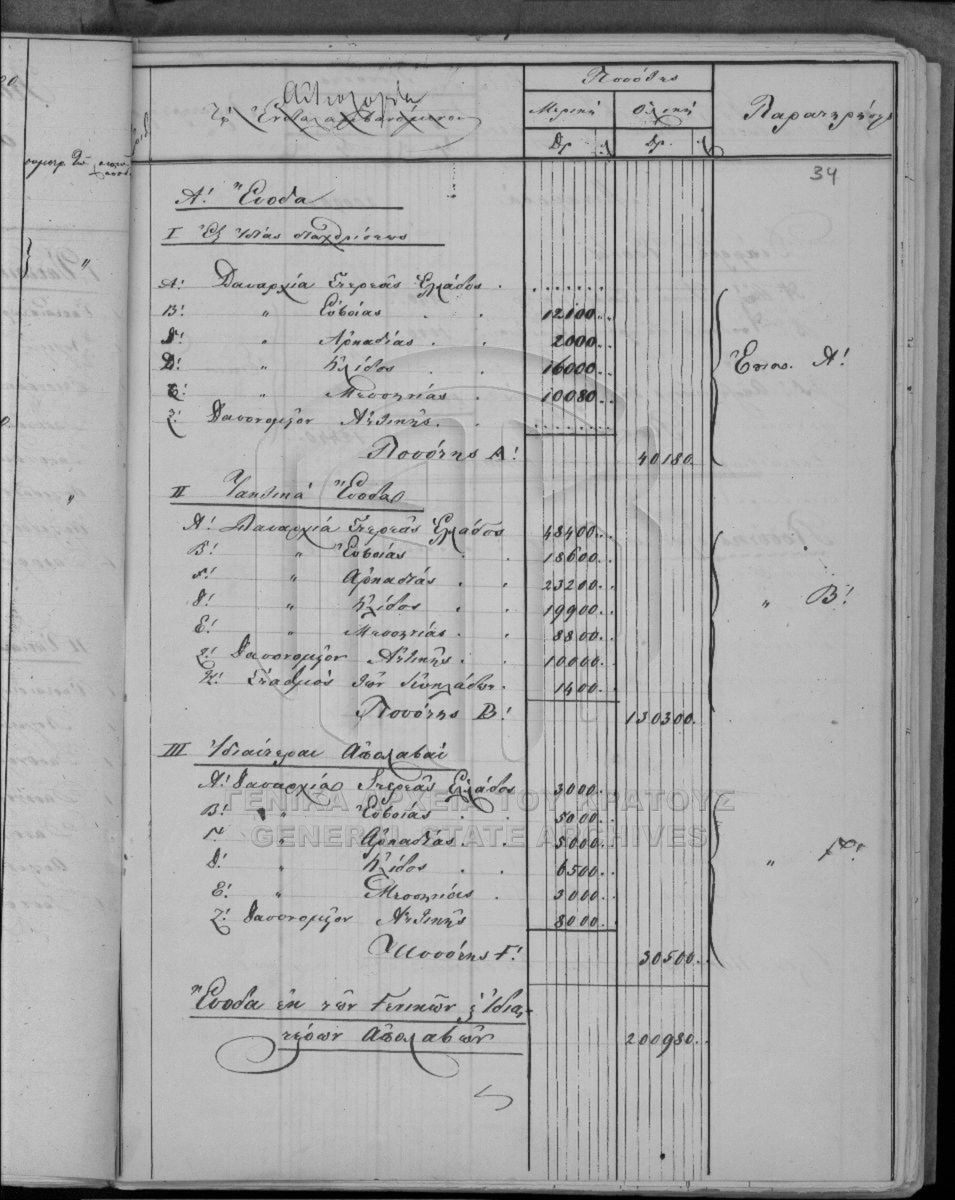 Ποσότης
Αἰτιολογία
Μερική Ὁλική
Παρατηρήσεις
Δρ. Λ Δρ. Λ
34
Α! Ἔσοδα
I Ἐξ ἰδίας διαχειρίσεως
Α! Δασαρχία Στερεᾶς Ἑλλάδος . . . . . . . .
Β! " Εὐβοίας . . 12100..
Γ! " Ἀρκαδίας . . 2000..
Δ! " Ἤλιδος . . 16000..
Ε! " Μεσσηνίας . 10080..
Ζ! Δασονομεῖον Ἀττικῆς . . . . . . . .
Ἔπισ. Α!
Ποσότης Α! 40180.
II Τακτικά Ἔσοδα
Α! Δασαρχία Στερεᾶς Ἑλλάδος 48400..
Β! " Εὐβοίας . . 18600..
Γ! " Ἀρκαδίας . . 23200..
Δ! " Ἤλιδος . . 19900..
Ε! " Μεσσηνίας . . 8800..
Ζ! Δασονομεῖον Ἀττικῆς . . 10000..
Σταθμός τῶν 1400..
" Β!
Ποσότης Β! 130300.
III Ἰδιαίτεραι Ἀπολαβαί
Α! Δασαρχία Στερεᾶς Ἑλλάδος 3000..
ΓΕΝΙΚΑ ΑΡΧΕΙΑ ΤΟΥ ΚΡΑΤΟΥΣ
Β! " Εὐβοίας . . 5000..
GENERAL STATE ARCHIVES
Γ! " Ἀρκαδίας . . 5000..
Δ! " Ἤλιδος . . 6500..
Ε! " Μεσσηνίας . 3000..
Ζ! Δασονομεῖον Ἀττικῆς 8000..
" Γ!
Ποσότης Γ! 30500.
Ἔσοδα ἐκ τῶν Γενικῶν ἐ Ἰδιαι-
τέρων Ἀπολαβῶν 200980.